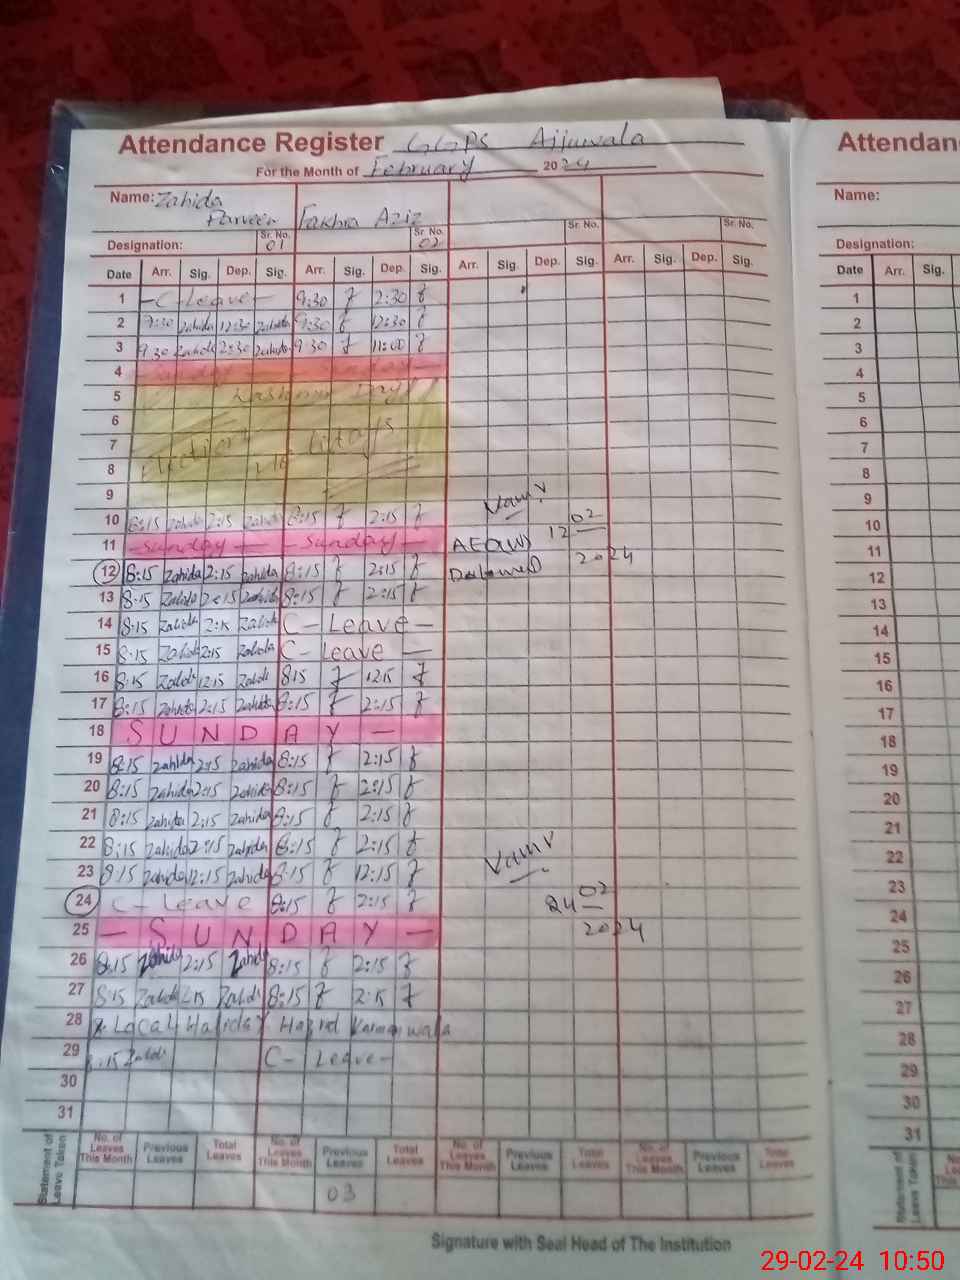 Attendance Register GGPS Ajjuwala
For the Month of February 2024
Name: Zahida Parveen Fakhra Aziz
Sr. No. 01 Sr. No. 02 Sr. No. Sr. No.
Designation:
Date Arr. Sig. Dep. Sig. Arr. Sig. Dep. Sig. Arr. Sig. Dep. Sig. Arr. Sig. Dep. Sig.
1 - C - Leave - 9:30 f 2:30 f
2 9:30 Zahida 12:30 Zahida 9:30 f 12:30 f
3 9 30 Zahida 2:30 Zahida 9 30 f 11:00 f
4 Sunday - Sunday -
5 Kashmir Day
6
7 Election
8
9
10 8:15 Zahida 2:15 Zahida 8:15 f 2:15 f
11 - Sunday - - Sunday -
12 8:15 Zahida 2:15 Zahida 8:15 f 2:15 f
12 02 2024
13 8:15 Zahida 2:15 Zahida 8:15 f 2:15 f
14 8:15 Zahida 2:15 Zahida C - Leave -
15 8:15 Zahida 2:15 Zahida C - Leave -
16 8:15 Zahida 12:15 Zahida 8:15 f 12:15 f
17 8:15 Zahida 2:15 Zahida 8:15 f 2:15 f
18 SUNDAY -
19 8:15 Zahida 2:15 Zahida 8:15 f 2:15 f
20 8:15 Zahida 2:15 Zahida 8:15 f 2:15 f
21 8:15 Zahida 2:15 Zahida 8:15 f 2:15 f
22 8:15 Zahida 2:15 Zahida 8:15 f 2:15 f
23 8:15 Zahida 12:15 Zahida 8:15 f 12:15 f
24 C - Leave 8:15 f 2:15 f
24 02 2024
25 - SUNDAY -
26 8:15 Zahida 2:15 Zahida 8:15 f 2:15 f
27 8:15 Zahida 2:15 Zahida 8:15 f 2:15 f
28 Local Haliday Hazrd Karmanwala
29 8:15 Zahida C - Leave -
30
31
Statement of Leave Taken
No. of Leaves This Month Previous Leaves Total Leaves No. of Leaves This Month Previous Leaves Total Leaves No. of Leaves This Month Previous Leaves Total Leaves No. of Leaves This Month Previous Leaves Total Leaves
03
Signature with Seal Head of The Institution
Attendan
Name:
Designation:
Date Arr. Sig.
1
2
3
4
5
6
7
8
9
10
11
12
13
14
15
16
17
18
19
20
21
22
23
24
25
26
27
28
29
30
31
Statement of Leave Taken
29-02-24 10:50